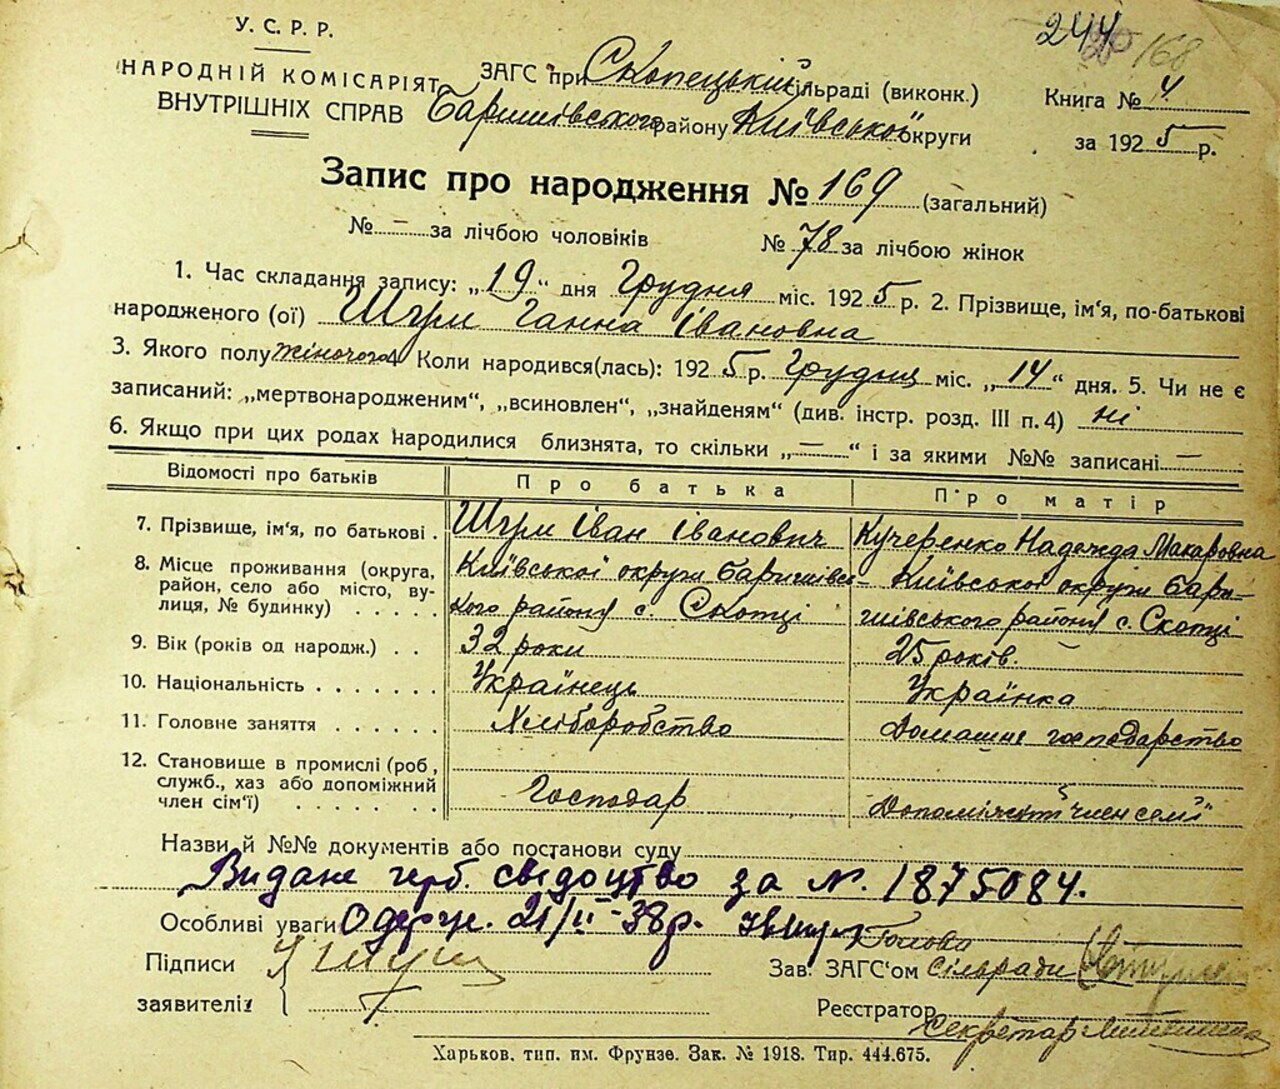 244 168
У. С. Р. Р.
НАРОДНІЙ КОМІСАРІЯТ
ВНУТРІШНІХ СПРАВ
ЗАГС при Скопецькій сільраді (виконк.)
Баришівського району Київської округи
Книга № 4
за 1925 р.
Запис про народження № 169 (загальний)
№ — за лічбою чоловіків № 78 за лічбою жінок
1. Час складання запису: „19“ дня Грудня міс. 1925 р. 2. Прізвище, ім'я, по-батькові
народженого (ої) Шгри Ганна Івановна
3. Якого полу жіночого 4 Коли народився(лась): 1925 р. Грудня міс. „14“ дня. 5. Чи не є
записаний: „мертвонародженим“, „всиновлен“, „знайденям“ (див. інстр. розд. III п. 4) ні
6. Якщо при цих родах народилися близнята, то скільки „—“ і за якими №№ записані —
Відомості про батьків Про батька Про матір
7. Прізвище, ім'я, по батькові . Шгри Іван Іванович Кучеренко Надежда Макаровна
8. Місце проживання (округа, район, село або місто, вулиця, № будинку) . . . . . Київської округи Баришівського району с. Скопці Київської округи Баришівського району с. Скопці
9. Вік (років од народж.) . . 32 роки 25 років.
10. Національність . . . . . . . Українець Українка
11. Головне заняття . . . . . . Хліборобство Домашнє господарство
12. Становище в промислі (роб, служб., хаз або допоміжний член сім'ї) . . . . . . . Господар Допоміжний член семї
Назви й №№ документів або постанови суду
Видане герб. свідоцтво за №. 1875084.
Особливі уваги Одерж. 21/II-38р.
Підписи
заявителів
Зав. ЗАГС'ом Голова Сільради
Реєстратор Секретар
Харьков. тип. им. Фрунзе. Зак. № 1918. Тир. 444.675.